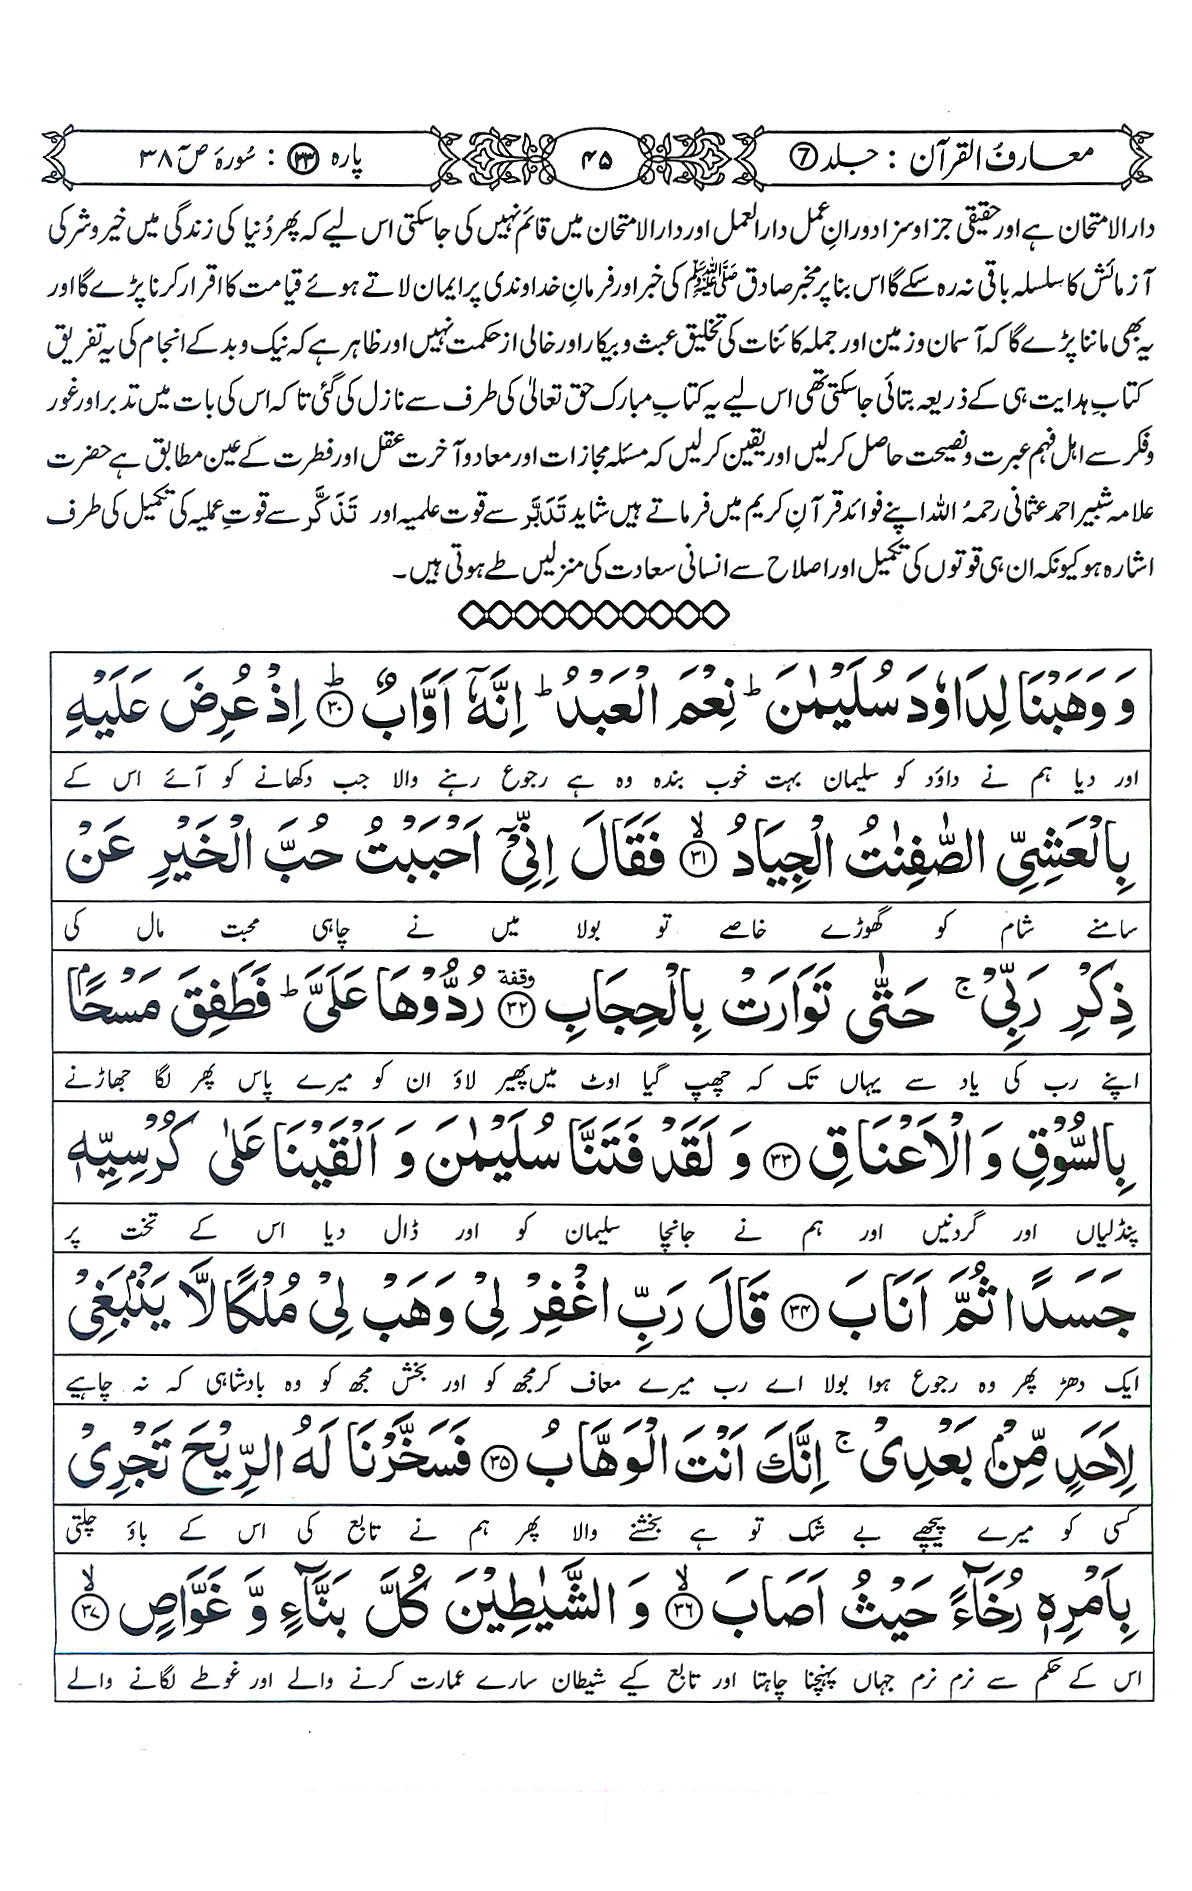 معارفُ القرآن : جلد ⑦
۴۵
پارہ ۲۳ : سُورۂ صٓ ۳۸
دارالامتحان ہے اور حقیقی جزا و سزا دورانِ عمل دارالعمل اور دارالامتحان میں قائم نہیں کی جاسکتی اس لیے کہ پھر دُنیا کی زندگی میں خیر و شر کی
آزمائش کا سلسلہ باقی نہ رہ سکے گا اس بنا پر مخبر صادق ﷺ کی خبر اور فرمانِ خداوندی پر ایمان لاتے ہوئے قیامت کا اقرار کرنا پڑے گا اور
یہ بھی ماننا پڑے گا کہ آسمان و زمین اور جملہ کائنات کی تخلیق عبث و بیکار اور خالی از حکمت نہیں اور ظاہر ہے کہ نیک و بد کے انجام کی یہ تفریق
کتابِ ہدایت ہی کے ذریعہ بتائی جاسکتی تھی اس لیے یہ کتابِ مبارک حق تعالیٰ کی طرف سے نازل کی گئی تاکہ اس کی بات میں تدبر اور غور
و فکر سے اہل فہم عبرت و نصیحت حاصل کرلیں اور یقین کرلیں کہ مسئلہ مجازات اور معاد و آخرت عقل اور فطرت کے عین مطابق ہے حضرت
علامہ شبیر احمد عثمانی رحمہُ اللہ اپنے فوائد قرآنِ کریم میں فرماتے ہیں شاید تَدَبُّر سے قوت علمیہ اور تَذَکُّر سے قوتِ عملیہ کی تکمیل کی طرف
اشارہ ہو کیونکہ ان ہی قوتوں کی تکمیل اور اصلاح سے انسانی سعادت کی منزلیں طے ہوتی ہیں۔
وَ وَهَبْنَا لِدَاوٗدَ سُلَيْمٰنَ ؕ نِعْمَ الْعَبْدُ ؕ اِنَّهٗۤ اَوَّابٌ ؕ﴿۳۰﴾ اِذْ عُرِضَ عَلَيْهِ
اور دیا ہم نے داؤد کو سلیمان بہت خوب بندہ وہ ہے رجوع رہنے والا جب دکھانے کو آئے اس کے
بِالْعَشِيِّ الصّٰفِنٰتُ الْجِيَادُ ۙ﴿۳۱﴾ فَقَالَ اِنِّيْۤ اَحْبَبْتُ حُبَّ الْخَيْرِ عَنْ
سامنے شام کو گھوڑے خاصے تو بولا میں نے چاہی محبت مال کی
ذِكْرِ رَبِّيْ ۚ حَتّٰى تَوَارَتْ بِالْحِجَابِ ﴿۳۲﴾ وقفة رُدُّوْهَا عَلَيَّ ؕ فَطَفِقَ مَسْحًۢا
اپنے رب کی یاد سے یہاں تک کہ چھپ گیا اوٹ میں پھیر لاؤ ان کو میرے پاس پھر لگا جھاڑنے
بِالسُّوْقِ وَ الْاَعْنَاقِ ﴿۳۳﴾ وَ لَقَدْ فَتَنَّا سُلَيْمٰنَ وَ اَلْقَيْنَا عَلٰى كُرْسِيِّهٖ
پنڈلیاں اور گردنیں اور ہم نے جانچا سلیمان کو اور ڈال دیا اس کے تخت پر
جَسَدًا ثُمَّ اَنَابَ ﴿۳۴﴾ قَالَ رَبِّ اغْفِرْ لِيْ وَ هَبْ لِيْ مُلْكًا لَّا يَنْۢبَغِيْ
ایک دھڑ پھر وہ رجوع ہوا بولا اے رب میرے معاف کر مجھ کو اور بخش مجھ کو وہ بادشاہی کہ نہ چاہیے
لِاَحَدٍ مِّنْۢ بَعْدِيْ ۚ اِنَّكَ اَنْتَ الْوَهَّابُ ﴿۳۵﴾ فَسَخَّرْنَا لَهُ الرِّيْحَ تَجْرِيْ
کسی کو میرے پیچھے بے شک تو ہے بخشنے والا پھر ہم نے تابع کی اس کے باؤ چلتی
بِاَمْرِهٖ رُخَآءً حَيْثُ اَصَابَ ۙ﴿۳۶﴾ وَ الشَّيٰطِيْنَ كُلَّ بَنَّآءٍ وَّ غَوَّاصٍ ۙ﴿۳۷﴾
اس کے حکم سے نرم نرم جہاں پہنچنا چاہتا اور تابع کیے شیطان سارے عمارت کرنے والے اور غوطے لگانے والے